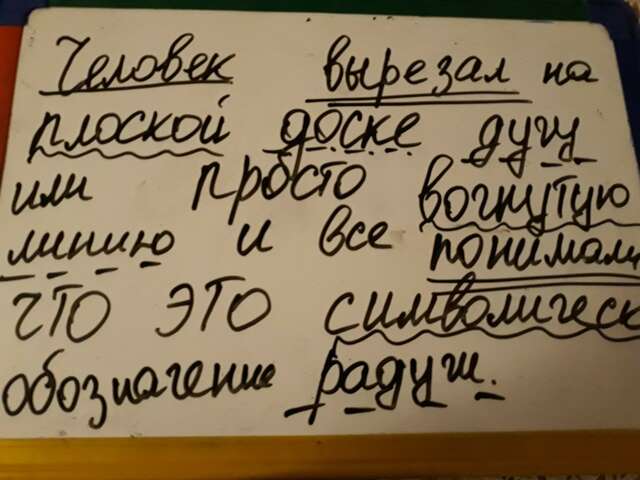 Человек вырезал на
плоской доске дугу
или просто вогнутую
линию и все понимали
что это символическ
обозначение радуж.